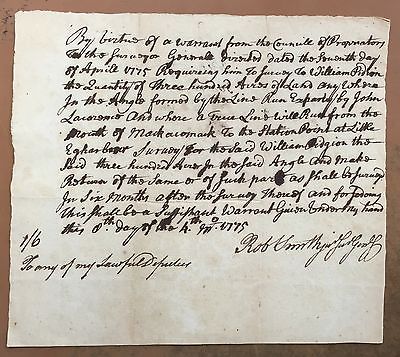 By Virtue of a Warrant from the Councill of Proprietors
To the Surveyor Generale Directed Dated the Seventh day
of Aprile 1775 Requireing him To Survey To William Pidgion
the Quantity of Three hundred Acres of Land any Where
In the Angle formed by the Line Run Exparty by John
Lawrence And where a true Line Will Run from the
Mouth of Mackacomack To the Station Point at Little
Egharbour Survey for the Said William Pidgion the
Said three hundred Acres In the Said Angle and Make
Return of the Same or of Such part as Shall be Survey'd
In Six Months after the Survey Thereof and for so doing
This Shall be a Suffishant Warrant Given Under my hand
this 8th day of the 4th Mo 1775
1/6
Rob Smith
To any of my Lawful Deputies